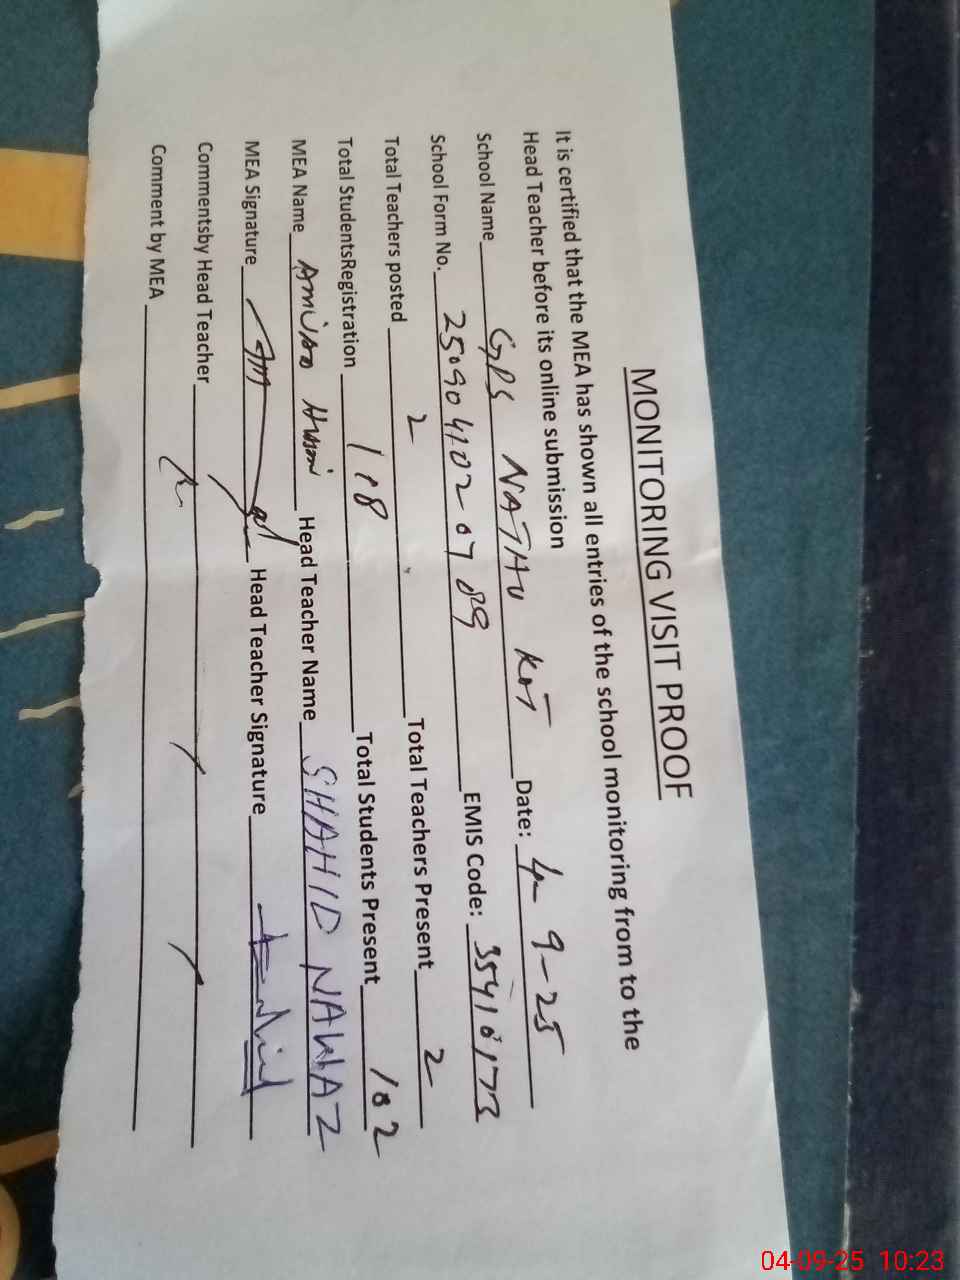 MONITORING VISIT PROOF
It is certified that the MEA has shown all entries of the school monitoring from to the
Head Teacher before its online submission
School Name GPS NATHU KOT Date: 4-9-25
School Form No. EMIS Code: 35410173
Total Teachers posted 2 Total Teachers Present 2
Total StudentsRegistration 118 Total Students Present 102
MEA Name Head Teacher Name SHAHID NAWAZ
MEA Signature Head Teacher Signature
Commentsby Head Teacher
Comment by MEA
04-09-25 10:23